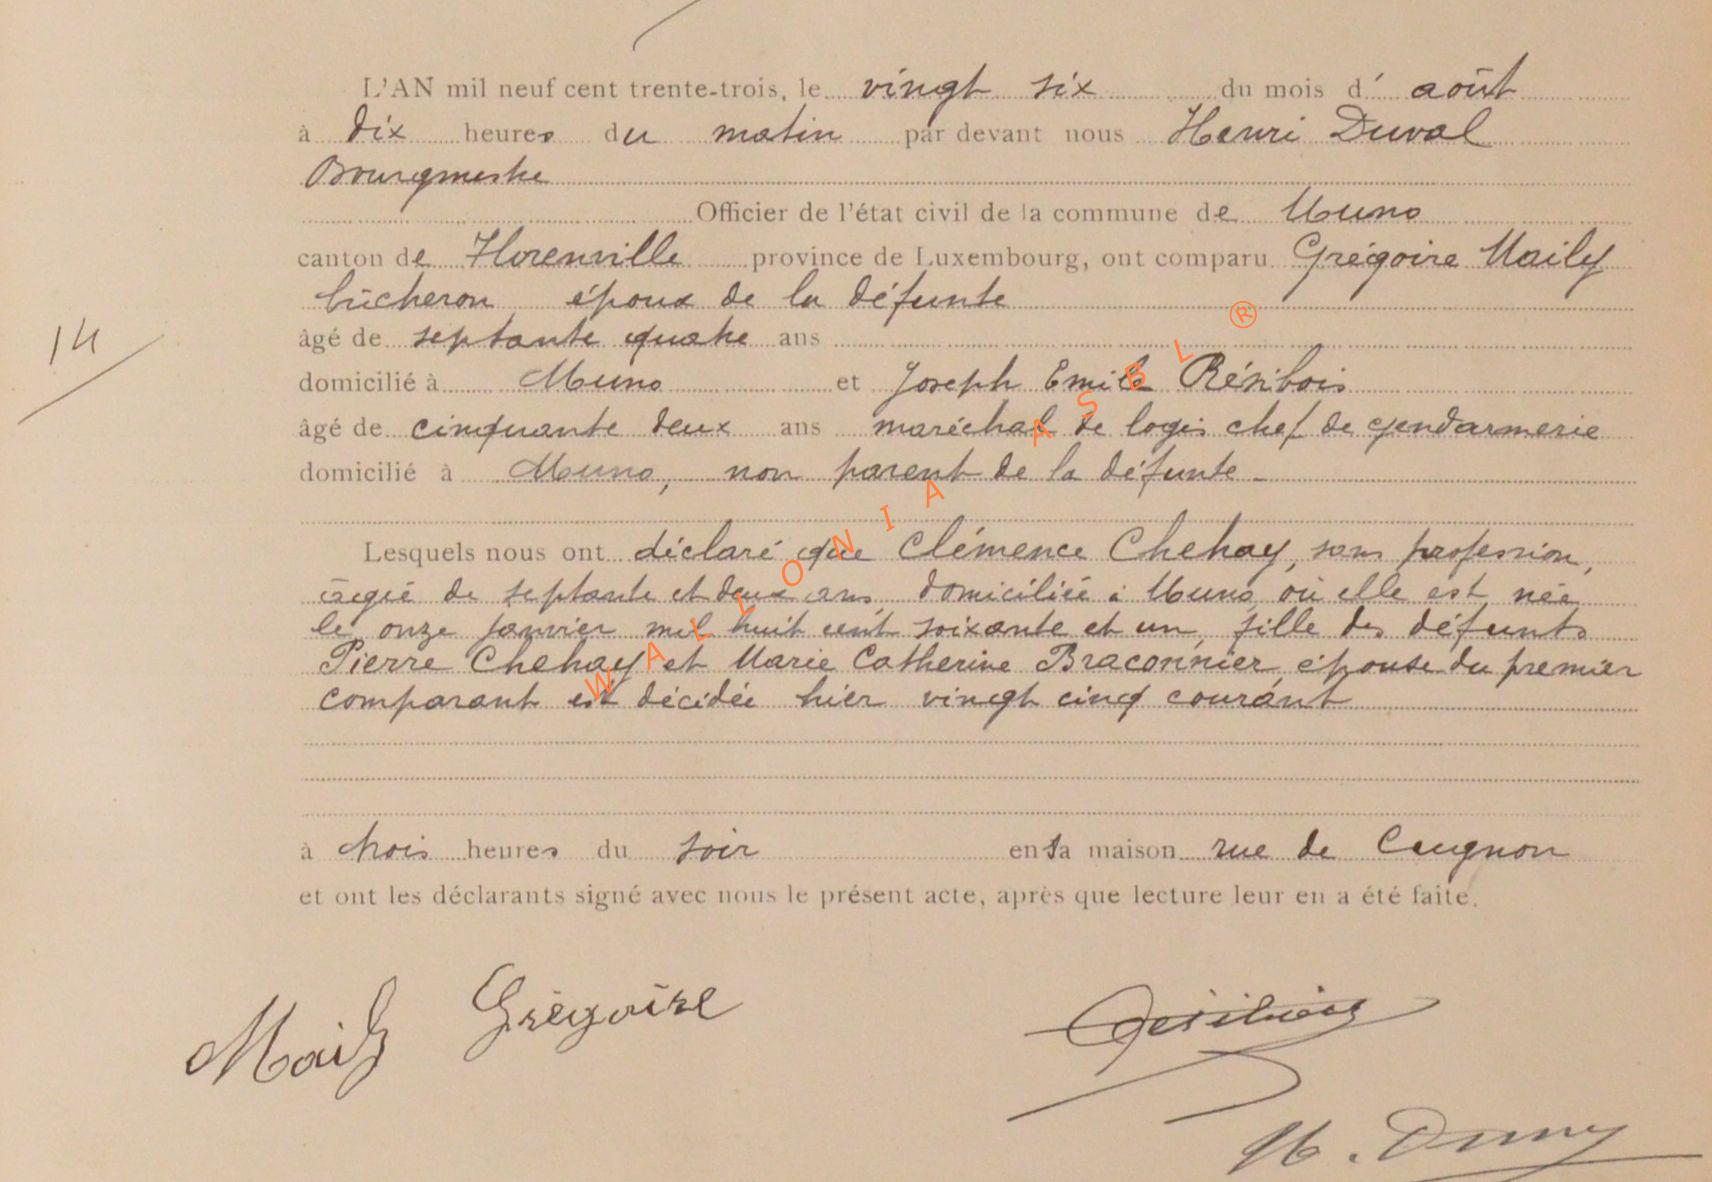 L'AN mil neuf cent trente-trois, le vingt six du mois d' août
à dix heures du matin par devant nous Henri Duval
Bourgmestre
Officier de l'état civil de la commune de Muno
canton de Florenville province de Luxembourg, ont comparu Grégoire Maily
bûcheron époux de la défunte
âgé de septante quatre ans
14
domicilié à Muno et Joseph Emile Résibois
âgé de cinquante deux ans maréchal de logis chef de gendarmerie
domicilié à Muno, non parent de la défunte
Lesquels nous ont déclaré que Clémence Chehay, sans profession,
âgée de septante et deux ans, domiciliée à Muno, où elle est née
le onze janvier mil huit cent soixante et un, fille des défunts
Pierre Chehay et Marie Catherine Braconnier épouse du premier
comparant est décédée hier vingt cinq courant
à trois heures du soir en sa maison rue de Cugnon
et ont les déclarants signé avec nous le présent acte, après que lecture leur en a été faite.
Maily Grégoire
Résibois
H. Duval
WALLONIA ASBL ®